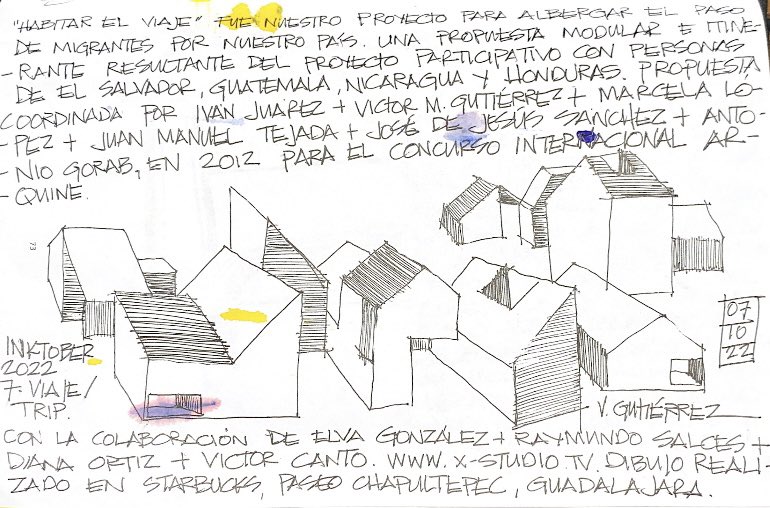 "HABITAR EL VIAJE" FUE NUESTRO PROYECTO PARA ALBERGAR EL PASO
DE MIGRANTES POR NUESTRO PAÍS. UNA PROPUESTA MODULAR E ITINE-
-RANTE RESULTANTE DEL PROYECTO PARTICIPATIVO CON PERSONAS
DE EL SALVADOR, GUATEMALA, NICARAGUA Y HONDURAS. PROPUESTA
COORDINADA POR IVAN JUÁREZ + VICTOR M. GUTIÉRREZ + MARCELA LO-
-PEZ + JUAN MANUEL TEJADA + JOSÉ DE JESÚS SÁNCHEZ + ANTO-
-NIO GORAB, EN 2012 PARA EL CONCURSO INTERNACIONAL AR-
-QUINE.
73
07
10
22
INKTOBER
2022
7. VIAJE/
TRIP.
V. GUTIÉRREZ
CON LA COLABORACIÓN DE ELVA GONZÁLEZ + RAYMUNDO SALCES +
DIANA ORTIZ + VICTOR CANTO. WWW.X-STUDIO.TV. DIBUJO REALI-
ZADO EN STARBUCKS, PASEO CHAPULTEPEC, GUADALAJARA.